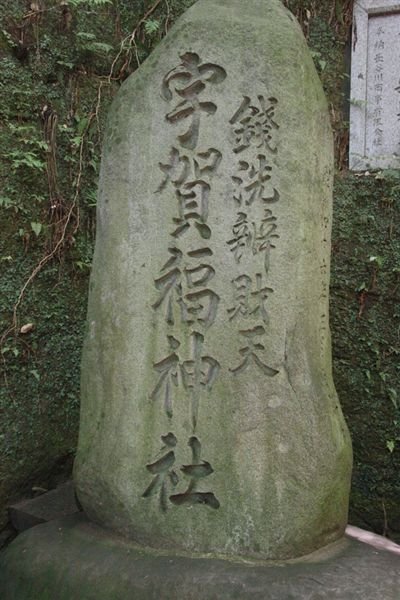 錢洗辨財天
宇賀福神社
奉納